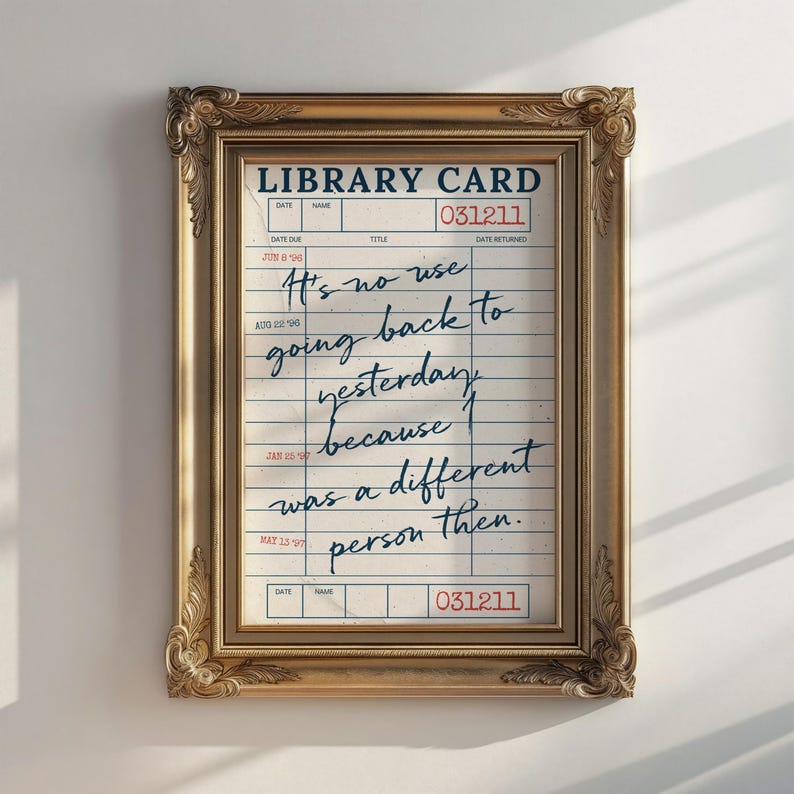 LIBRARY CARD
DATE NAME 031211
DATE DUE TITLE DATE RETURNED
JUN 8 '96
It's no use
AUG 22 '96
going back to
yesterday,
because I
JAN 25 '97
was a different
person then.
MAY 13 '97
DATE NAME 031211